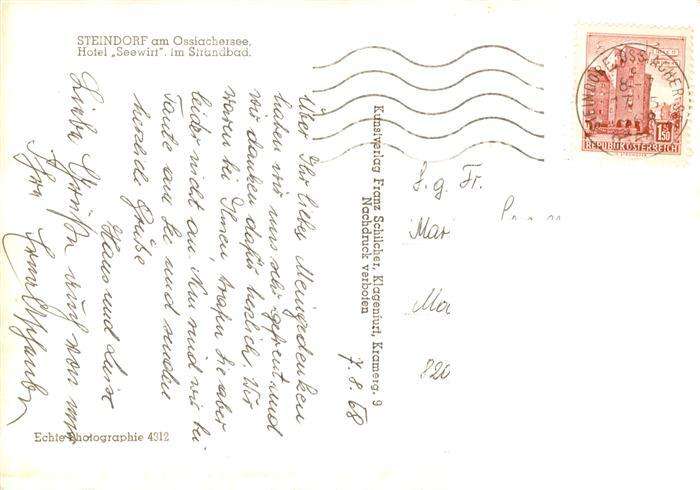 STEINDORF am Ossiachersee.
Hotel „Seewirt". im Strandbad.
7. 8. 68
Über Ihr liebes Meingedenken
haben wir uns sehr gefreut und
wir danken dafür herzlich. Wir
waren bei Ihnen, trafen Sie aber
leider nicht an. Nun sind wir bei
Tante am See und senden
herzliche Grüße
Hans und Luise
Liebe Grüße auch von
Ihre
Echte Photographie 4312
Kunstverlag Franz Schilcher, Klagenfurt, Kramerg. 9
Nachdruck verboten
1.50
REPUBLIK ÖSTERREICH
STEINDORF, OSSIACHERSEE
S. g. Fr.
Mar
Mo
820